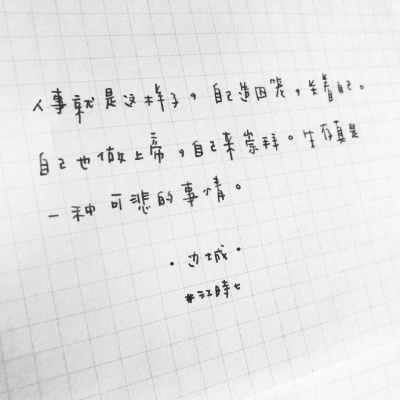 人事就是这样子，自己造囚笼，关着自己。
自己也做上帝，自己来崇拜。生存真是
一种可悲的事情。
·边城·
#江時七